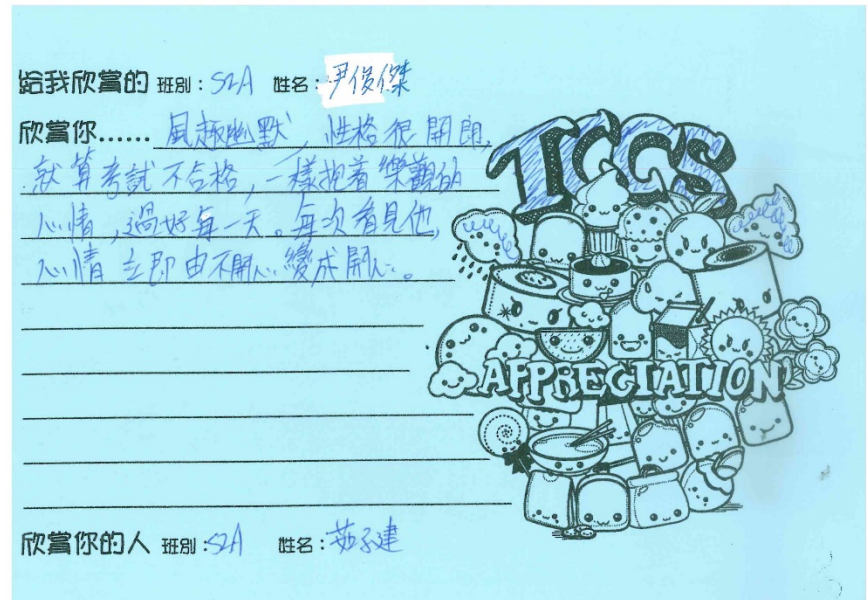 給我欣賞的 班別：S2A 姓名：尹俊傑
欣賞你…… 風趣幽默，性格很開朗，
就算考試不合格，一樣抱着樂觀的
心情，過好每一天。每次看見他，
心情立即由不開心變成開心。
TCCS
APPRECIATION
欣賞你的人 班別：S2A 姓名：茹子建